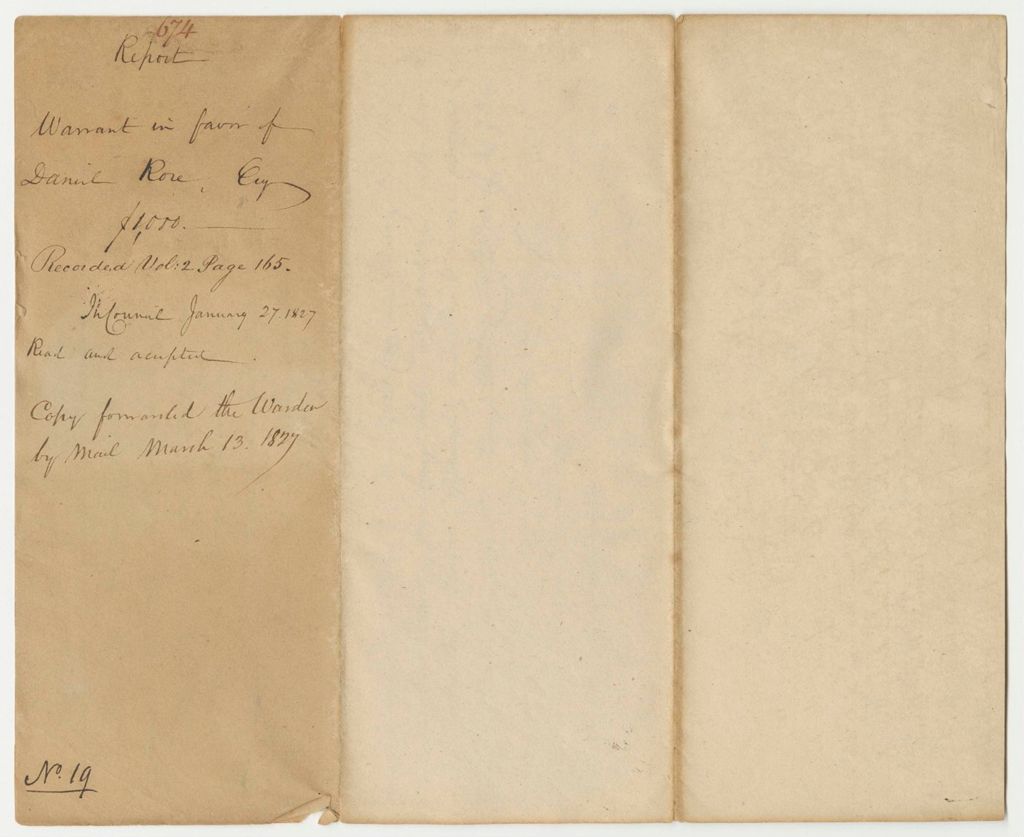 674
Report
Warrant in favor of
Daniel Rose, Esq
$1,000.
Recorded Vol: 2 Page 165.
In Council January 27. 1827
Read and accepted.
Copy forwarded the Warden
by Mail March 13. 1827
No. 19